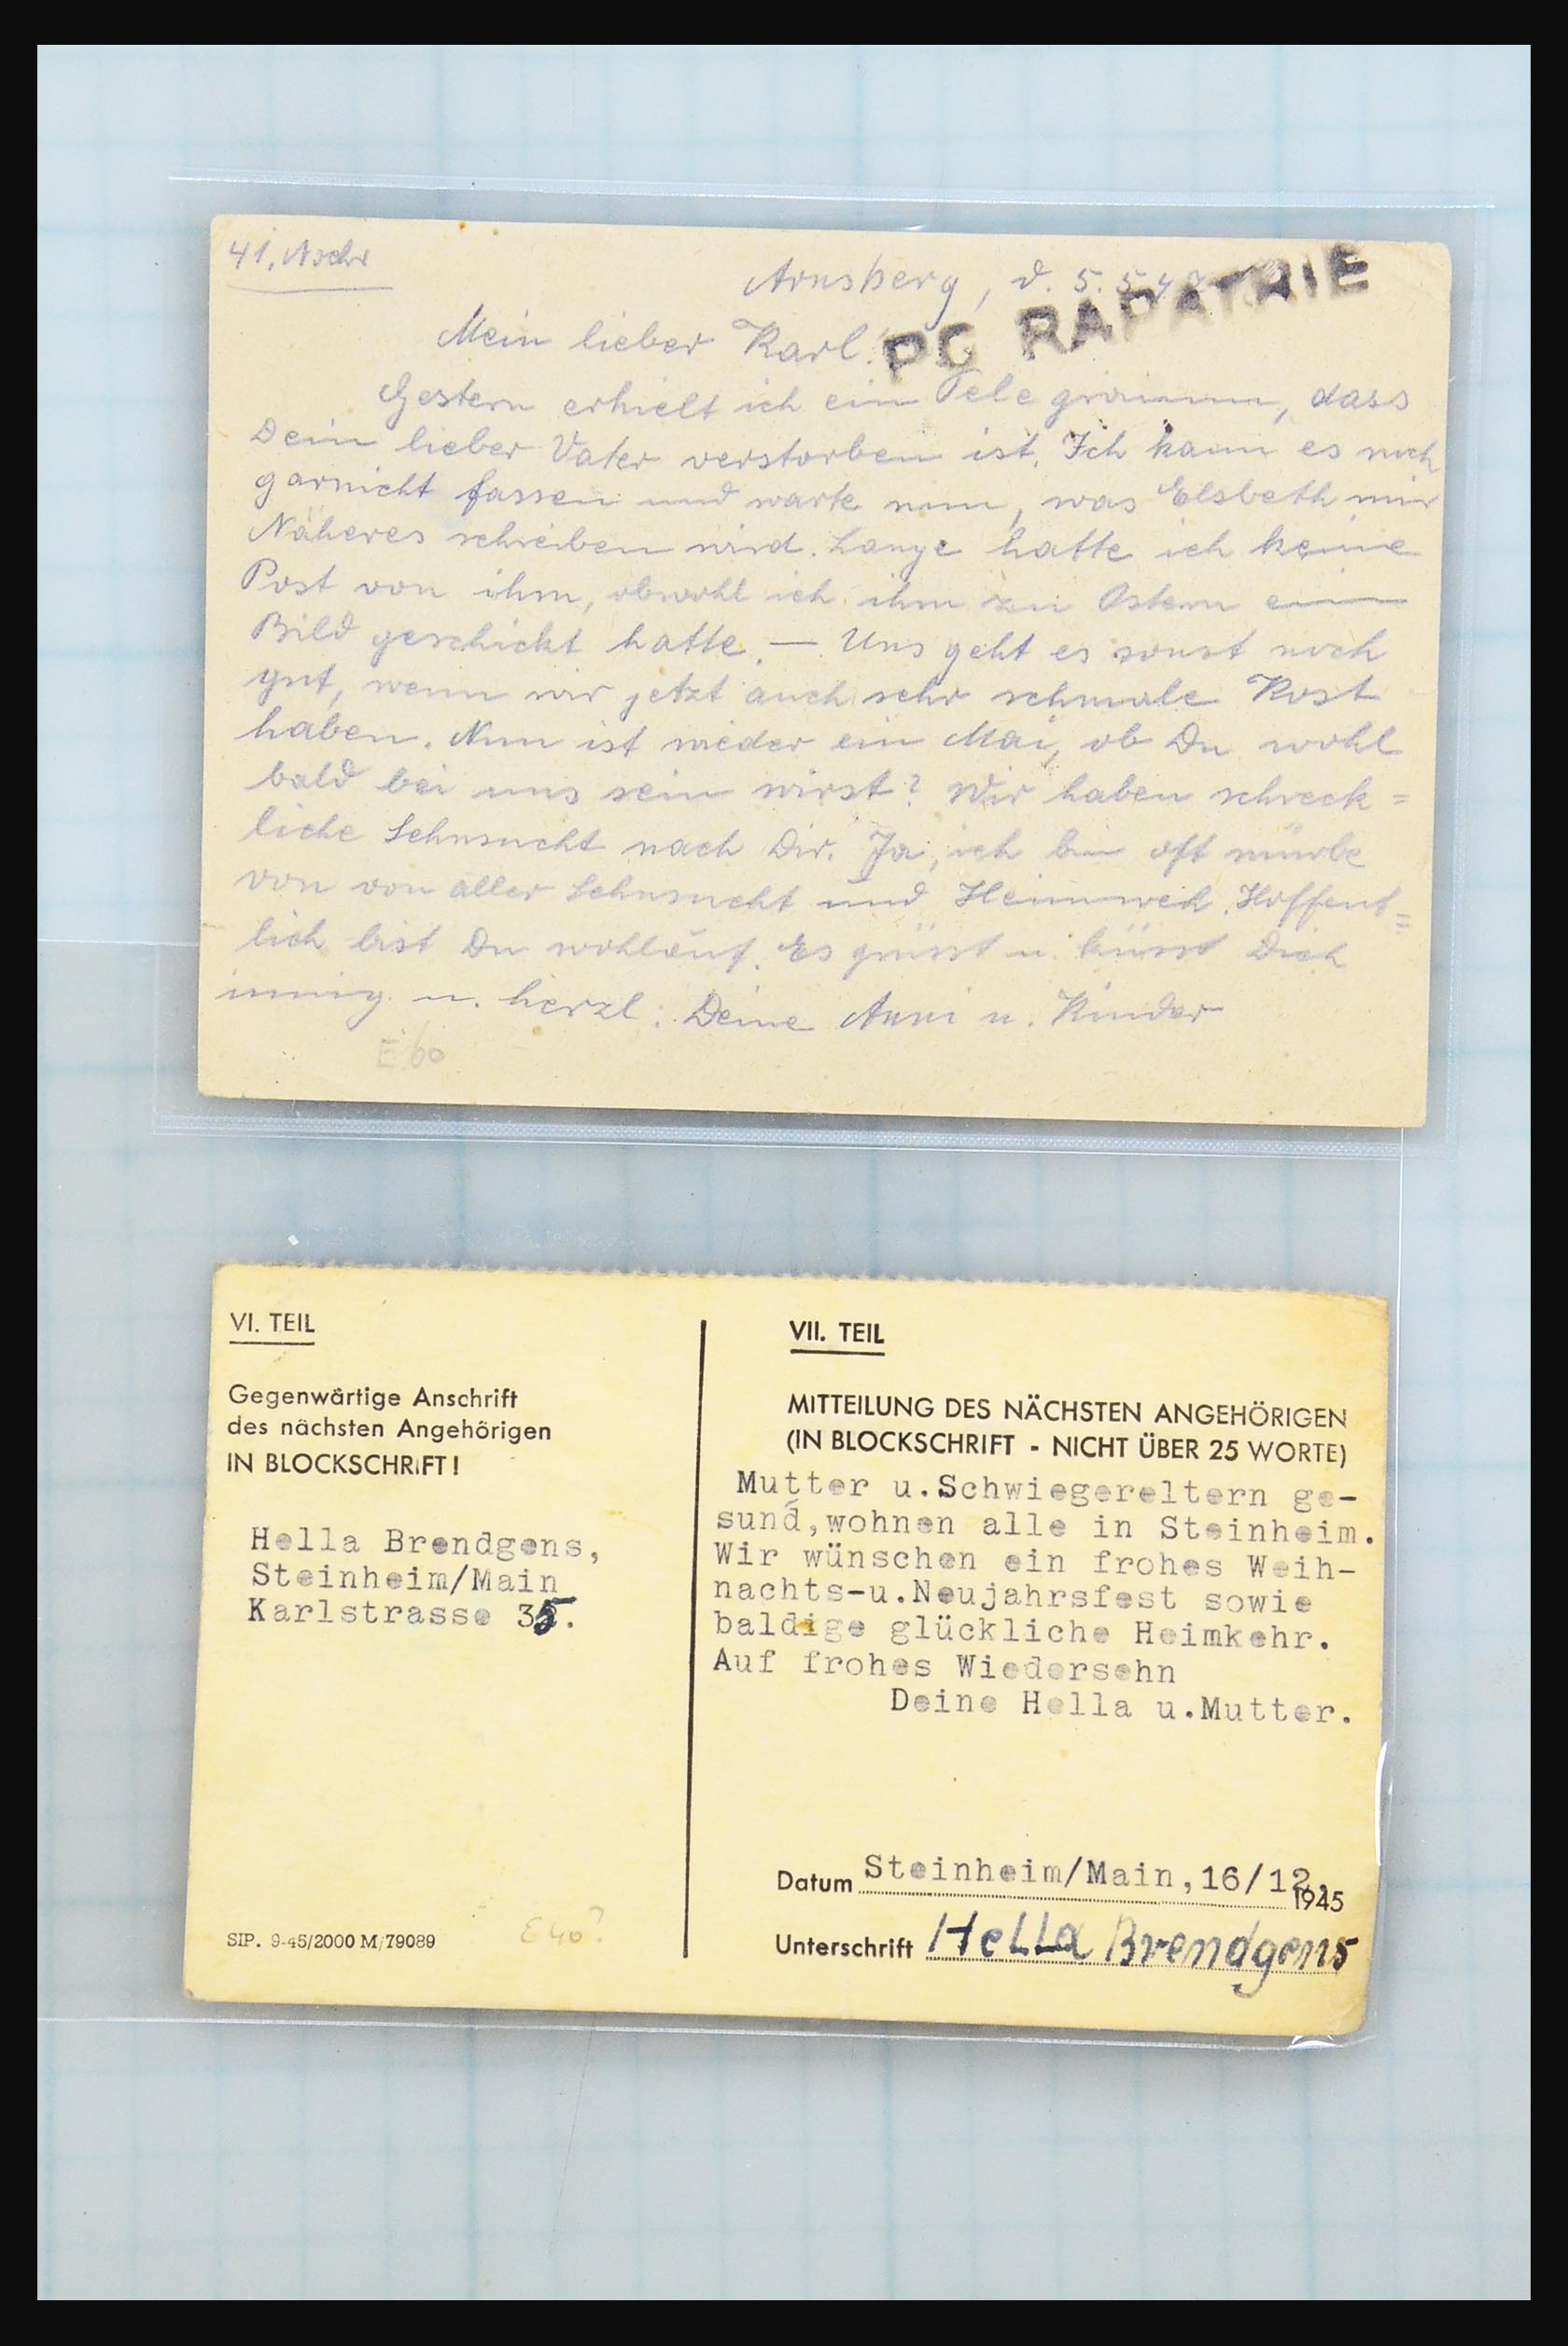 41. Nachr
Arnsberg, d. 5.5.47
PG RAPATRIE
Mein lieber Karl!
Gestern erhielt ich ein Telegramm, dass
Dein lieber Vater verstorben ist. Ich kann es noch
garnicht fassen und warte nun, was Elsbeth mir
Näheres schreiben wird. Lange hatte ich keine
Post von ihm, obwohl ich ihm zu Ostern ein
Bild geschickt hatte. — Uns geht es sonst noch
gut, wenn wir jetzt auch sehr schmale Kost
haben. Nun ist wieder ein Mai, ob Du wohl
bald bei uns sein wirst? Wir haben schreck=
liche Sehnsucht nach Dir. Ja, ich bin oft mürbe
von von aller Sehnsucht und Heimweh. Hoffent=
lich bist Du wohlauf. Es grüsst u. küsst Dich
innig u. herzl. Deine Anni u. Kinder
E 60
VI. TEIL
Gegenwärtige Anschrift
des nächsten Angehörigen
IN BLOCKSCHRIFT!
Hella Brendgens,
Steinheim/Main
Karlstrasse 35.
SIP. 9-45/2000 M/79089
E 40?
VII. TEIL
MITTEILUNG DES NÄCHSTEN ANGEHÖRIGEN
(IN BLOCKSCHRIFT - NICHT ÜBER 25 WORTE)
Mutter u.Schwiegereltern ge-
sund,wohnen alle in Steinheim.
Wir wünschen ein frohes Weih-
nachts-u.Neujahrsfest sowie
baldige glückliche Heimkehr.
Auf frohes Wiedersehn
Deine Hella u.Mutter.
Datum Steinheim/Main,16/12. 1945
Unterschrift Hella Brendgens